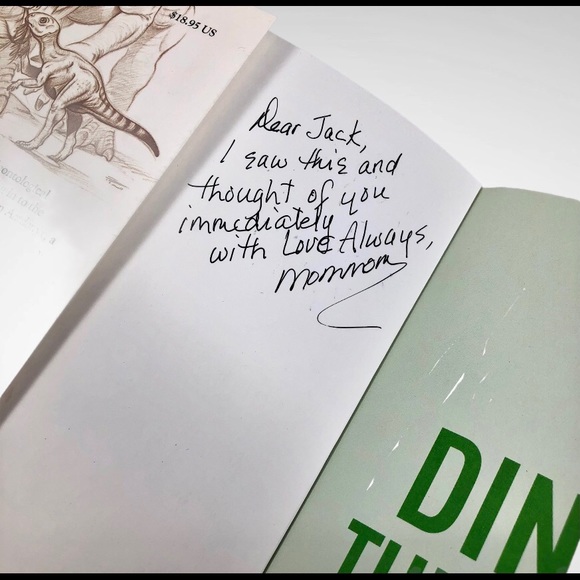 $18.95 US
Dear Jack,
I saw this and
thought of you
immediately
with Love Always,
Mommom
DIN